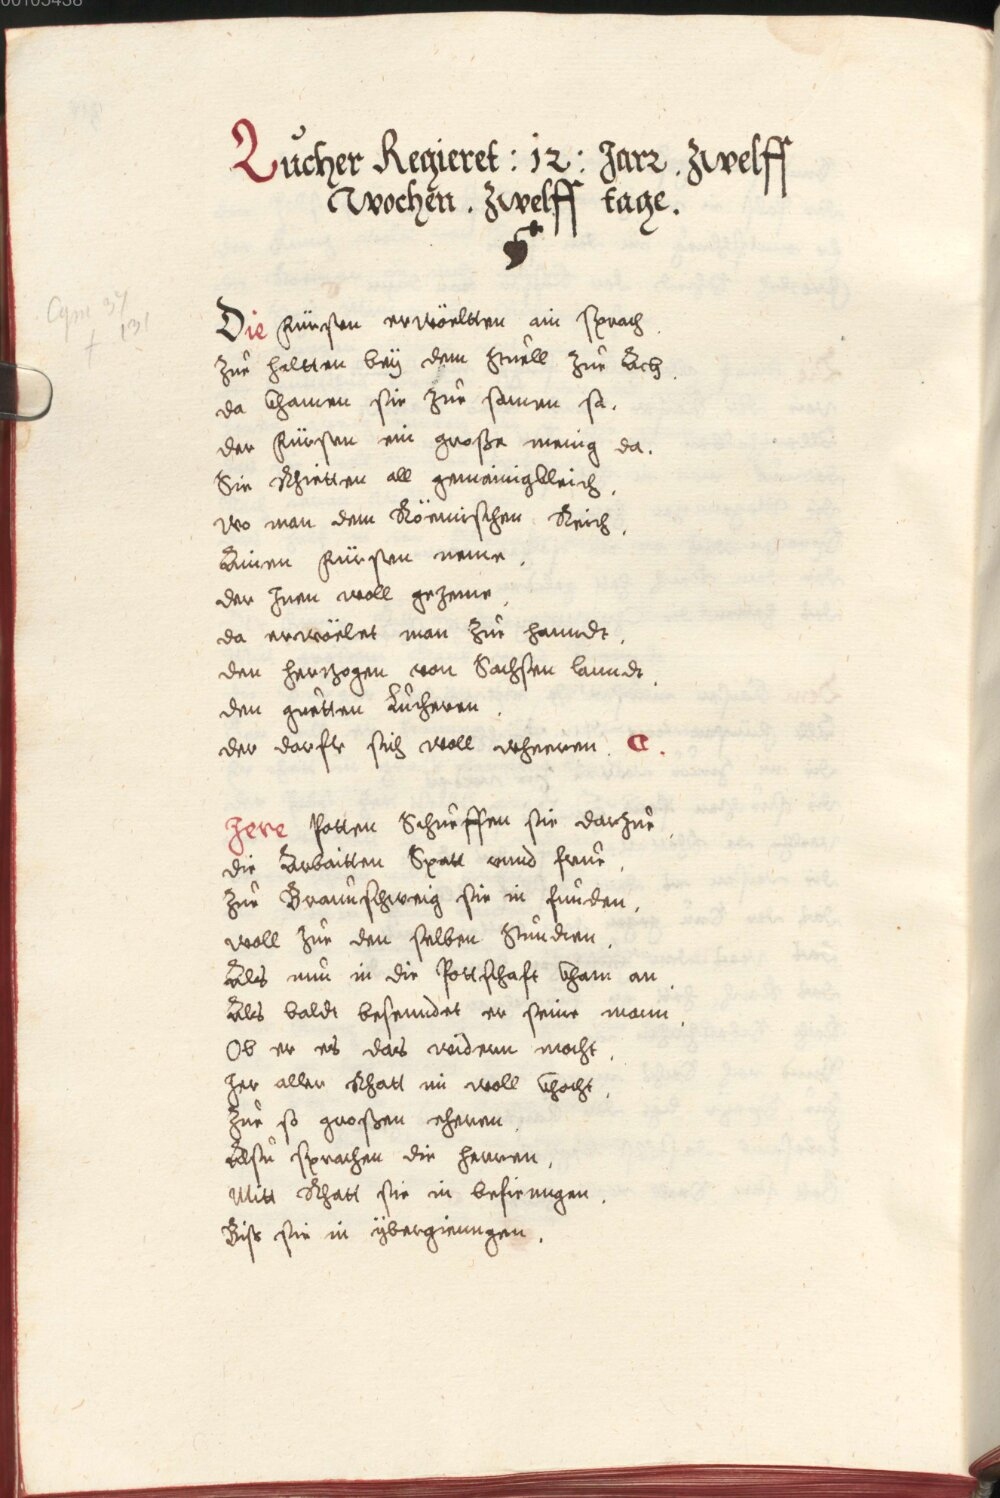 00105438
Lůcher Regieret : 12 : Jarz . Zwelff
Wochen . Zwelff tage .
Cgm 37
131
Die Fürsten erwöeltten ain sprach .
Zůe haltten beÿ dem Stuell Zůe Ach .
da Khamen sie Zůe samen sa .
der Fürsten ein große menig da .
Sie Rhietten all gemainigkleich .
wo man dem Röemischen Reich .
Ainen Fürsten neme .
der Jnen woll gezeme .
da erwöelet man Zůe hanndt .
den hertzogen von Sachsen lanndt .
den guetten Lůcheren .
der dorfte sich woll wheeren . C .
Jere Potten Schueffen sie darzůe .
die Arbaitten Spatt vnnd frůe .
Zůe Braunschweig sie in funden .
woll Zůe den selben Stundten .
Als nun in die Pottschaft Kham an .
Als baldt besenndet er seine mann .
Ob er es das widern mocht .
Jer aller Rhatt im woll Thocht .
Zůe so großen eheren .
Also sprachen die herren .
Mitt Rhatt sie in befiengen .
Biss sie in übergienngen .